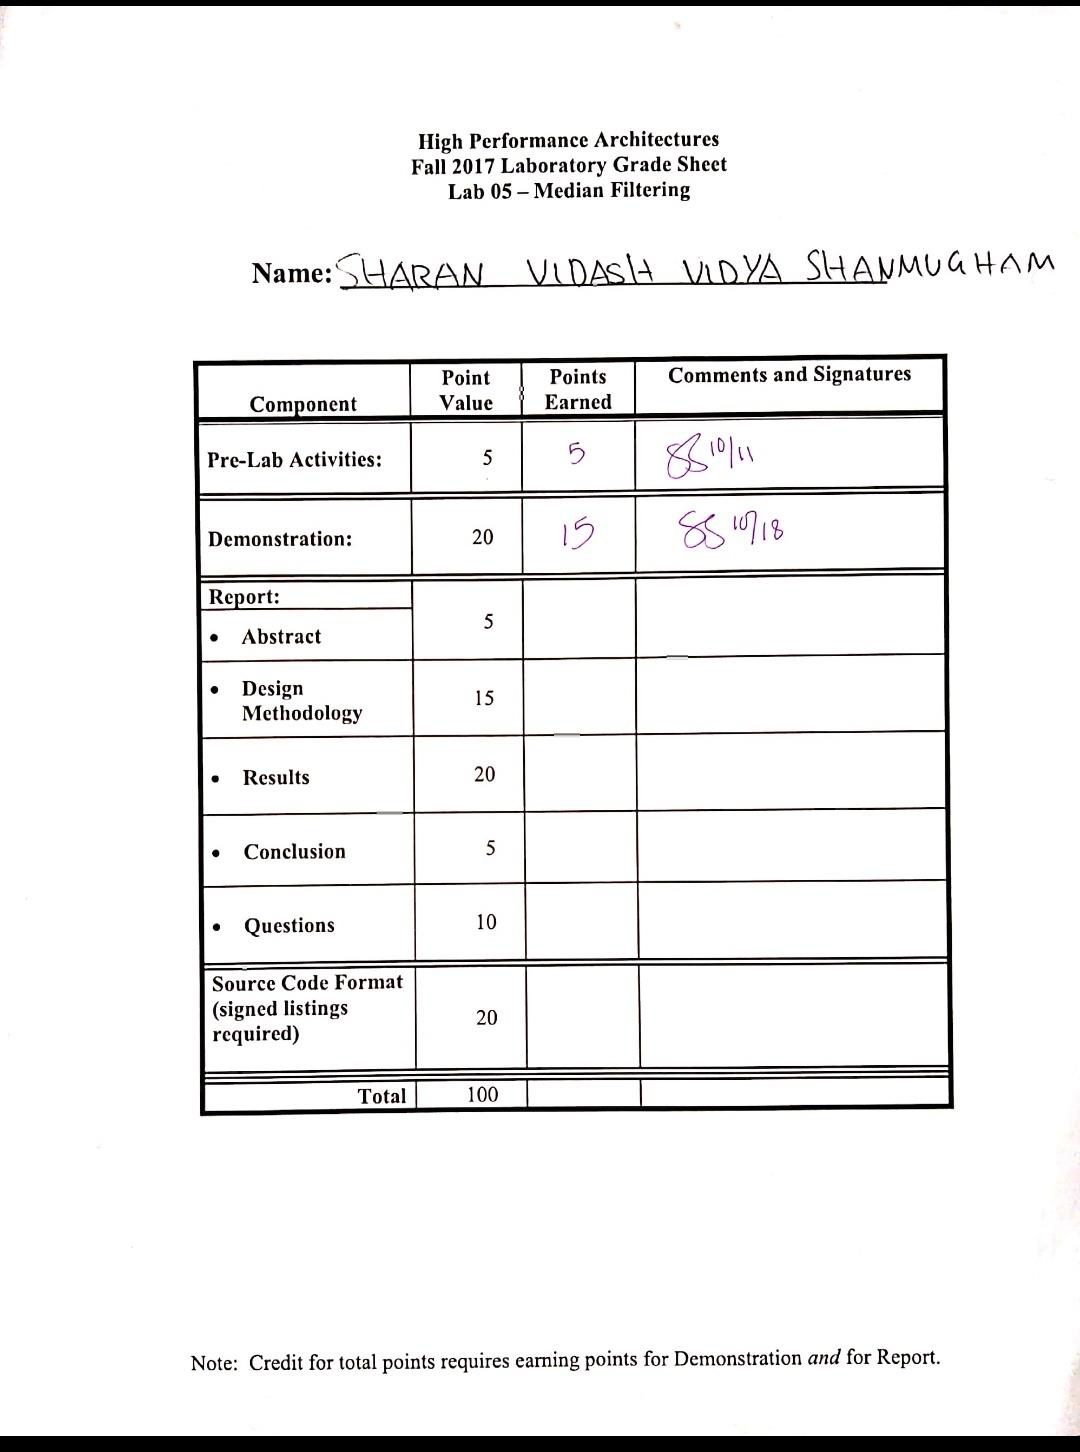 High Performance Architectures
Fall 2017 Laboratory Grade Sheet
Lab 05 – Median Filtering
Name: SHARAN VIDASH VIDYA SHANMUGHAM
Component Point Value Points Earned Comments and Signatures
Pre-Lab Activities: 5 5 SS 10/11
Demonstration: 20 15 SS 10/18
Report:
• Abstract 5
• Design Methodology 15
• Results 20
• Conclusion 5
• Questions 10
Source Code Format (signed listings required) 20
Total 100
Note: Credit for total points requires earning points for Demonstration and for Report.